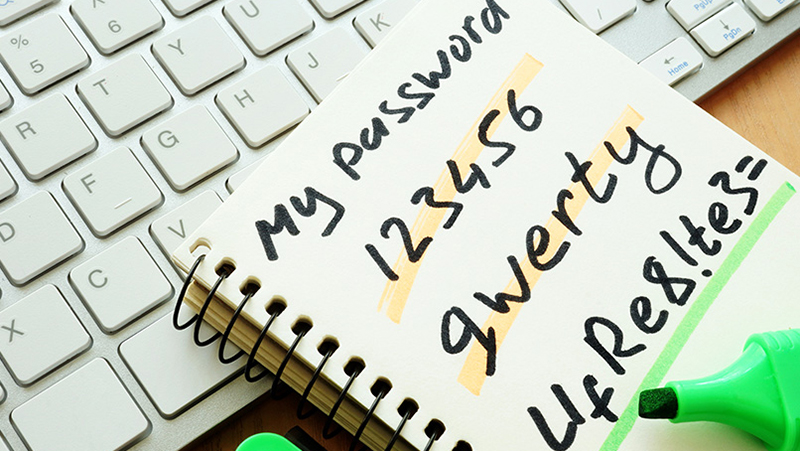 My password
123456
qwerty
UfRe8!te3=
%
5
^
6
R
T
Y
D
F
G
H
J
K
X
C
V
PgUp
PgDn
Home